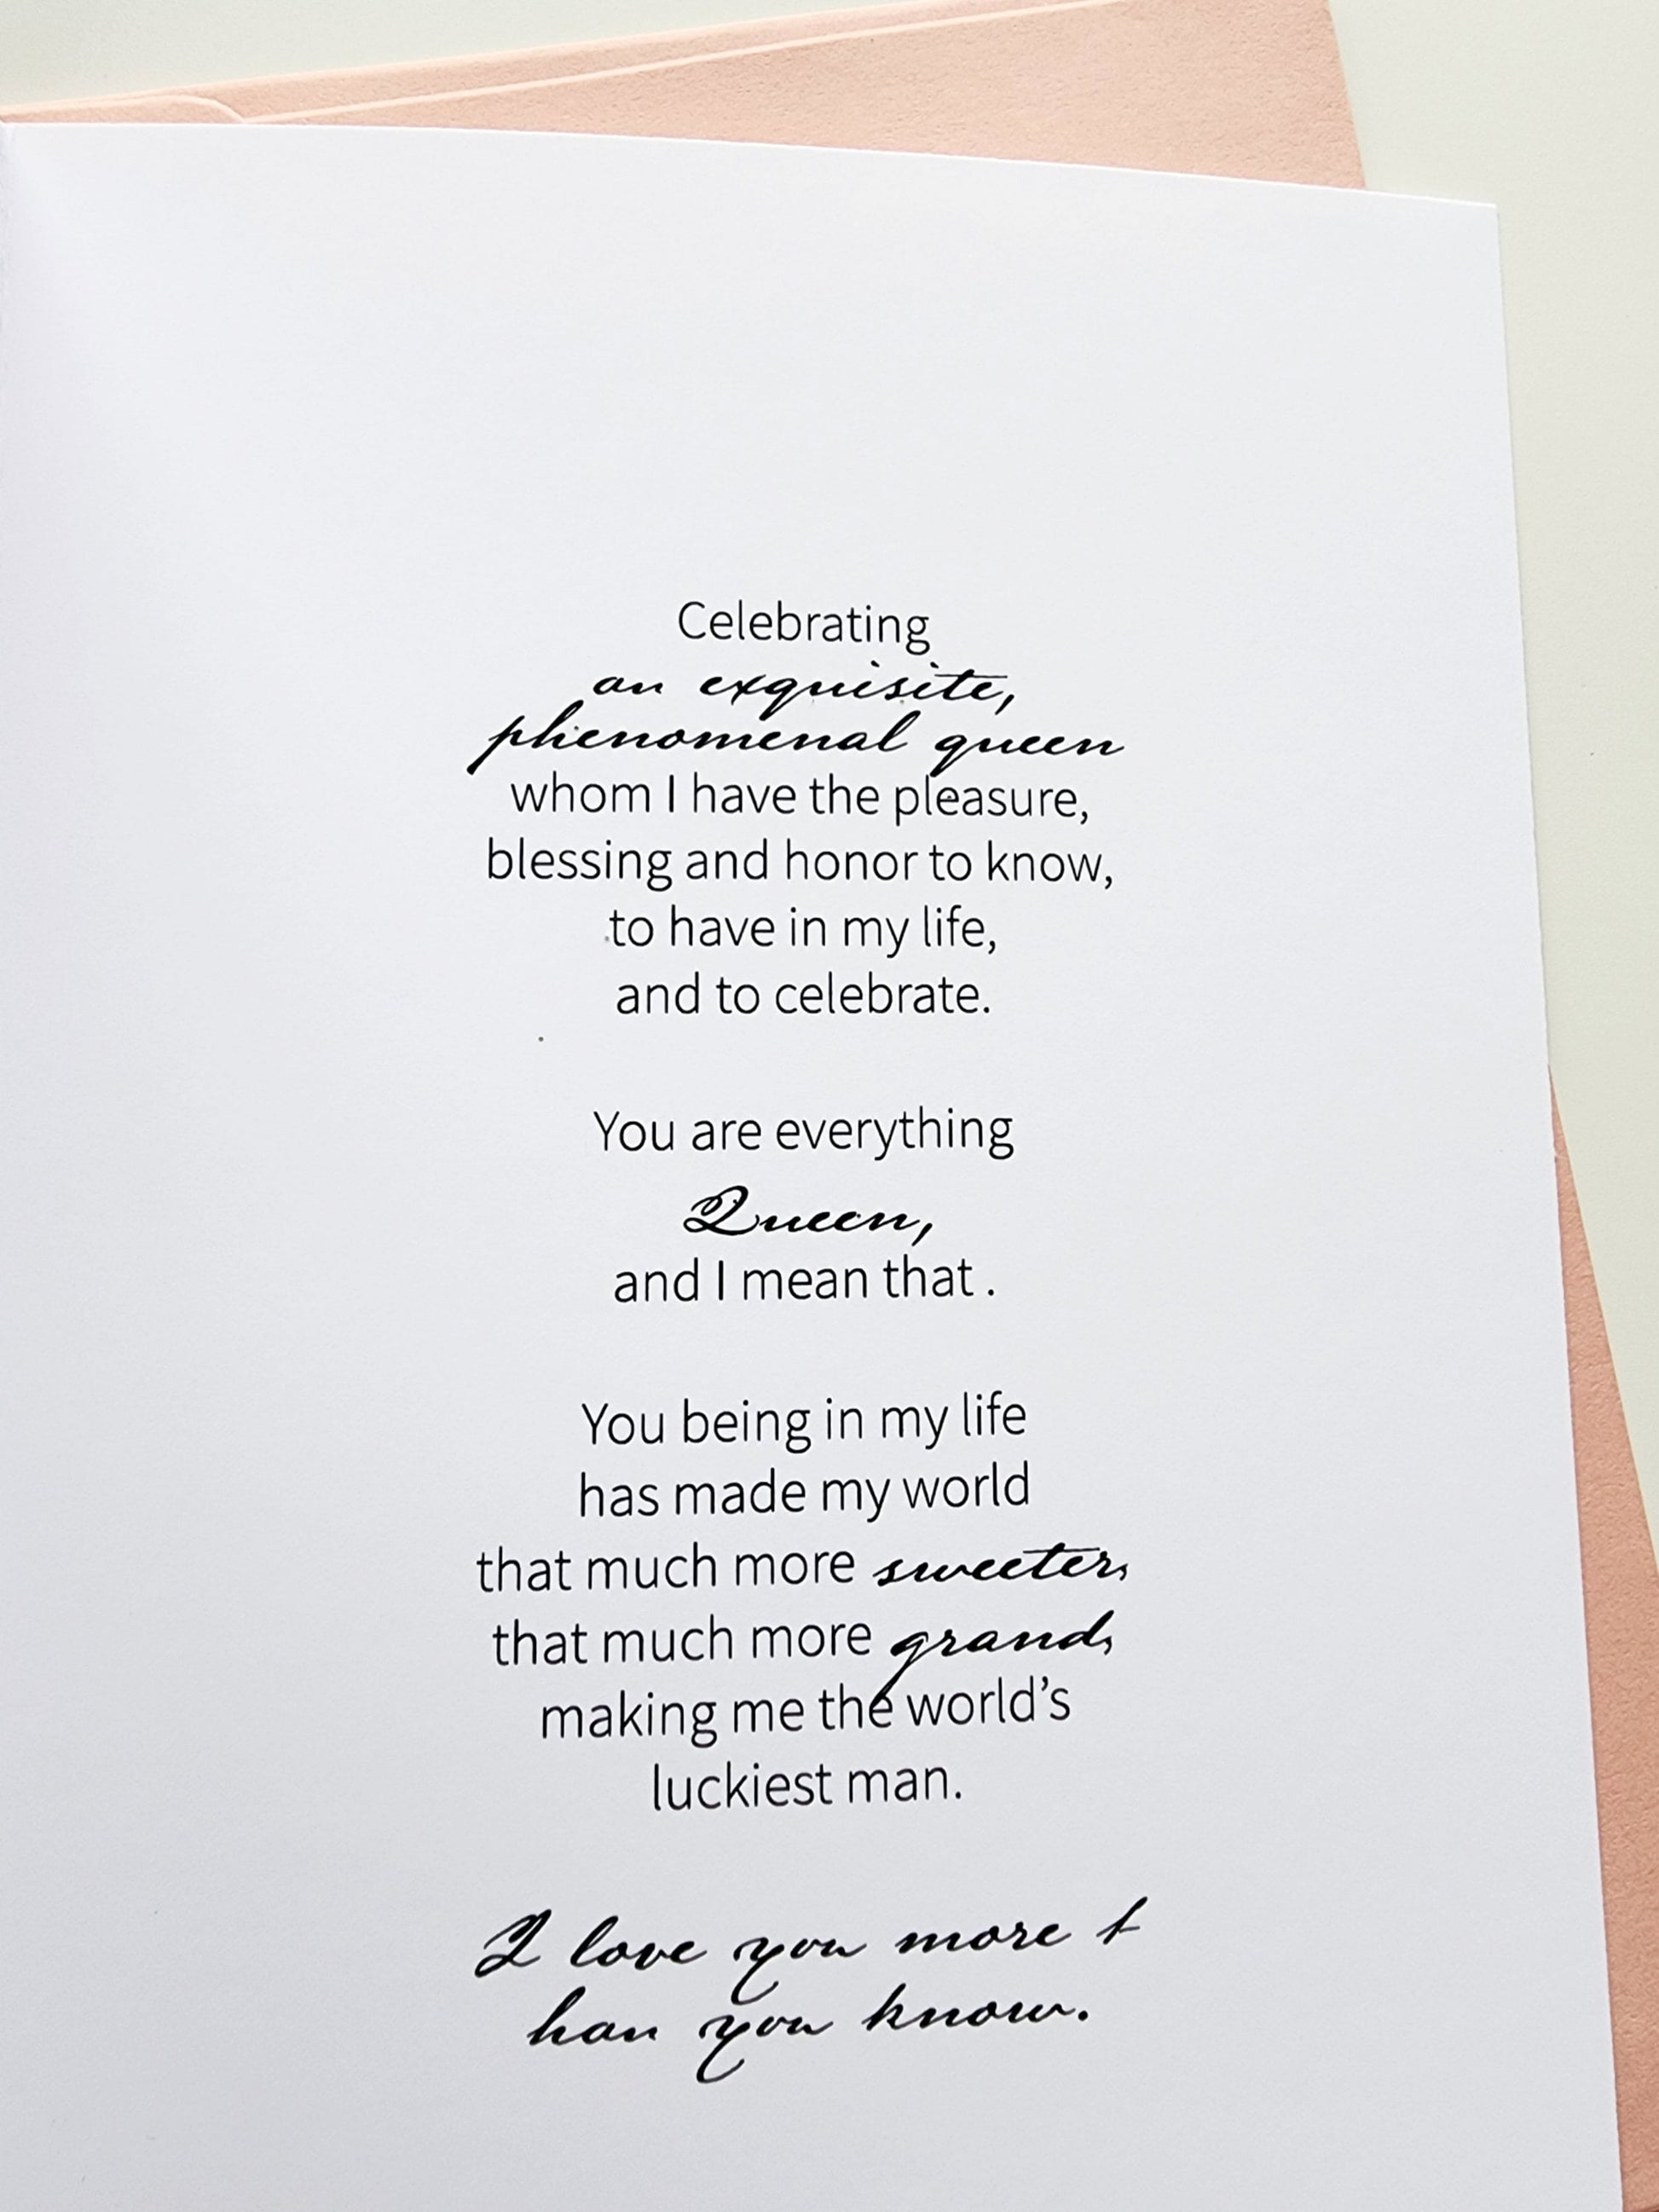 Celebrating
an exquisite,
phenomenal queen
whom I have the pleasure,
blessing and honor to know,
to have in my life,
and to celebrate.
You are everything
Queen,
and I mean that .
You being in my life
has made my world
that much more sweeter,
that much more grand,
making me the world’s
luckiest man.
I love you more t
han you know.